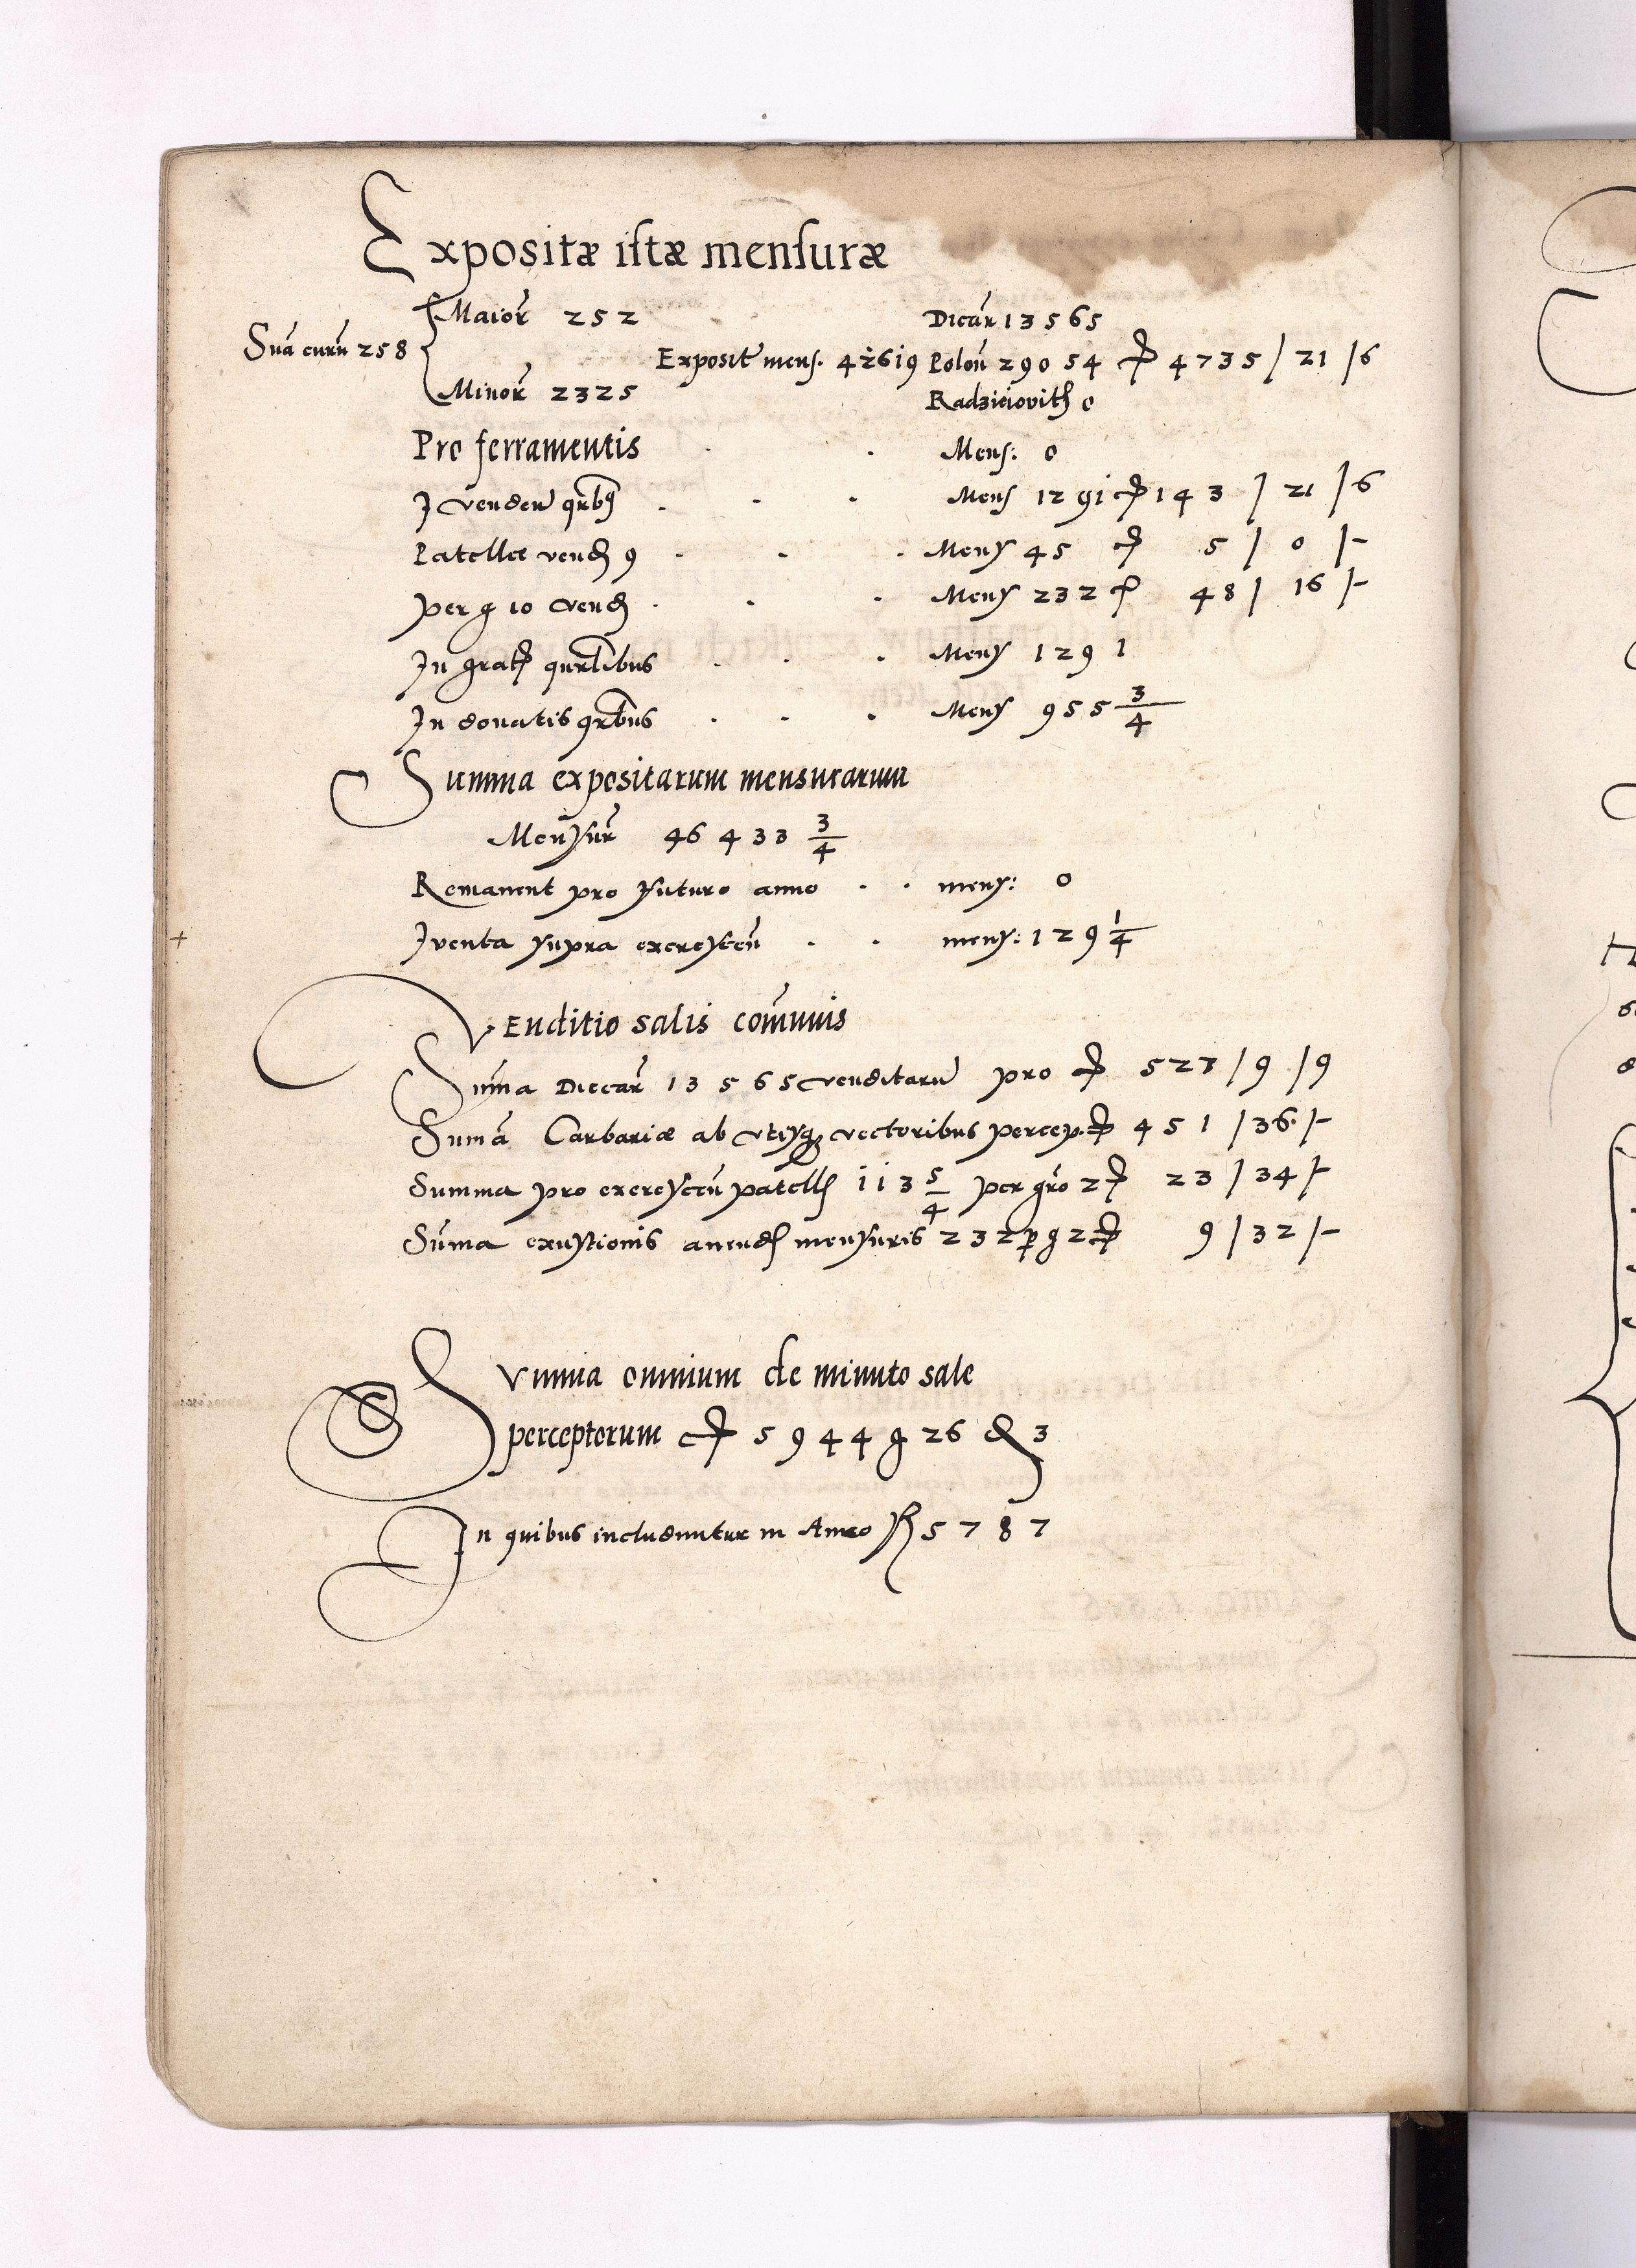 Expositæ istæ mensuræ
Maior 252 Dicar 13565
Suma curru 258 Exposit mens. 42619 Polon 29054 4735 | 21 | 6
Minor 2325 Radziciovith 0
Pro ferramentis . . Mens: 0
J vender qrbs . . . Mens 1291 143 | 21 | 6
Patellæ vend 9 . . . Mens 45 5 | 0 | -
per g 10 vend . . . Mens 232 48 | 16 | -
In grat qurlibus . . . Mens 1291
In donatis qrbus . . . Mens 955 3/4
Summa expositarum mensurarum
Mensur 46433 3/4
Remanent pro futuro anno . . mens: 0
+ Jventa supra excrescen . . mens: 129 1/4
VEnditio salis comunis
Suma Diccar 13565 venditaru pro 527 | 9 | 9
Suma Carbariæ ab utisq vectoribus percep. 451 | 36 | -
Summa pro excrescen patell 113 5/4 per gro 2 23 | 34 | -
Suma exustionis a mensuris 232 p g 2 9 | 32 | -
SVmma omnium de minuto sale
perceptorum 5944 g 26 d 3
In quibus includuntur in Auro 5787